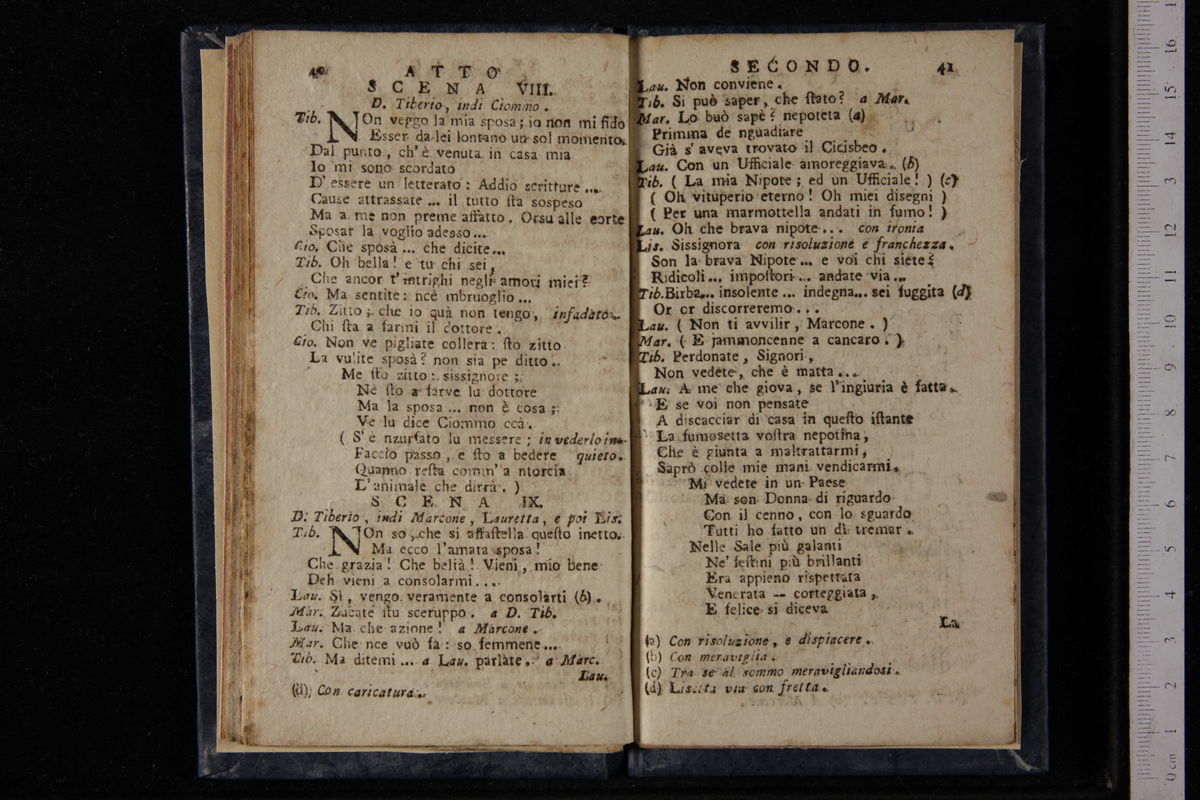 40 ATTO
SCENA VIII.
D. Tiberio, indi Ciommo.
Tib. NOn veggo la mia sposa; io non mi fido
Esser da lei lontano un sol momento.
Dal punto, ch'è venuta in casa mia
Io mi sono scordato
D'essere un letterato: Addio scritture ...
Cause attrassate ... il tutto ſta sospeso
Ma a me non preme affatto. Orsu alle corte
Sposar la voglio adesso...
Cio. Che sposà ... che dicite...
Tib. Oh bella! e tu chi sei,
Che ancor t'intrighi negli amori miei?
Cio. Ma sentite: ncè mbruoglio ...
Tib. Zitto; che io quà non tengo, infadato.
Chi ſta a farmi il dottore.
Cio. Non ve pigliate collera: ſto zitto
La vulite sposà? non sia pe ditto.
Me ſto zitto: sissignore;
Nè ſto a farve lu dottore
Ma la sposa ... non è cosa;
Ve lu dice Ciommo ccà.
( S'è nzurfato lu messere; in vederlo in-
Faccio passo, e ſto a bedere quieto.
Quanno reſta comm' a ntorcia
L'animale che dirrà. )
SCENA IX.
D. Tiberio, indi Marcone, Lauretta, e poi Lis.
Tib. NOn so, che si affaſtella queſto inetto.
Ma ecco l'amata sposa!
Che grazia! Che beltà! Vieni, mio bene
Deh vieni a consolarmi...
Lau. Sì, vengo veramente a consolarti (b).
Mar. Zucate ſtu sceruppo. a D. Tib.
Lau. Ma che azione! a Marcone.
Mar. Che nce vuò fà: so femmene...
Tib. Ma ditemi ... a Lau. parlate. a Marc.
Lau.
Con caricatura.
SECONDO. 41
Lau. Non conviene.
Tib. Si può saper, che ſtato? a Mar.
Mar. Lo buò sapè? nepoteta (a)
Primma de nguadiare
Già s'aveva trovato il Cicisbeo.
Lau. Con un Uffiziale amoreggiava. (b)
Tib. ( La mia Nipote; ed un Uffiziale! ) (c)
( Oh vituperio eterno! Oh miei disegni )
( Per una marmottella andati in fumo! )
Lau. Oh che brava nipote... con ironia
Lis. Sissignora con risoluzione e franchezza.
Son la brava Nipote ... e voi chi siete?
Ridicoli ... impoſtori ... andate via ...
Tib. Birba... insolente ... indegna... sei fuggita (d)
Or or discorreremo...
Lau. ( Non ti avvilir, Marcone. )
Mar. ( E jammoncenne a cancaro. )
Tib. Perdonate, Signori,
Non vedete, che è matta ...
Lau. A me che giova, se l'ingiuria è fatta.
E se voi non pensate
A discacciar di casa in queſto iſtante
La fumosetta voſtra nepotina,
Che è giunta a maltrattarmi,
Saprò colle mie mani vendicarmi.
Mi vedete in un Paese
Ma son Donna di riguardo
Con il cenno, con lo sguardo
Tutti ho fatto un dì tremar.
Nelle Sale più galanti
Ne' feſtini più brillanti
Era appieno rispettata
Venerata -- corteggiata,
E felice si diceva
La
(a) Con risoluzione, e dispiacere.
(b) Con meraviglia.
(c) Tra se al sommo meravigliandosi.
(d) Lisetta via con fretta.